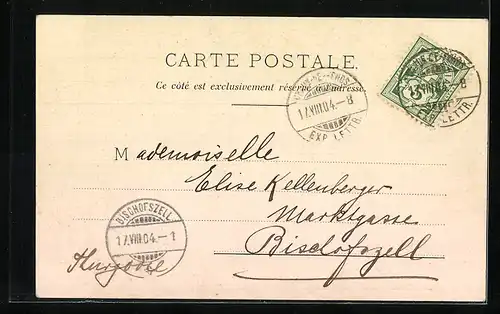 CARTE POSTALE.
Ce côté est exclusivement réservé au adresse
17.VIII.04.–8
EXP. LETTR.
Mademoiselle
Elise Kellenberger
Marktgasse
Bischofszell
BISCHOFSZELL
17.VIII.04.–1